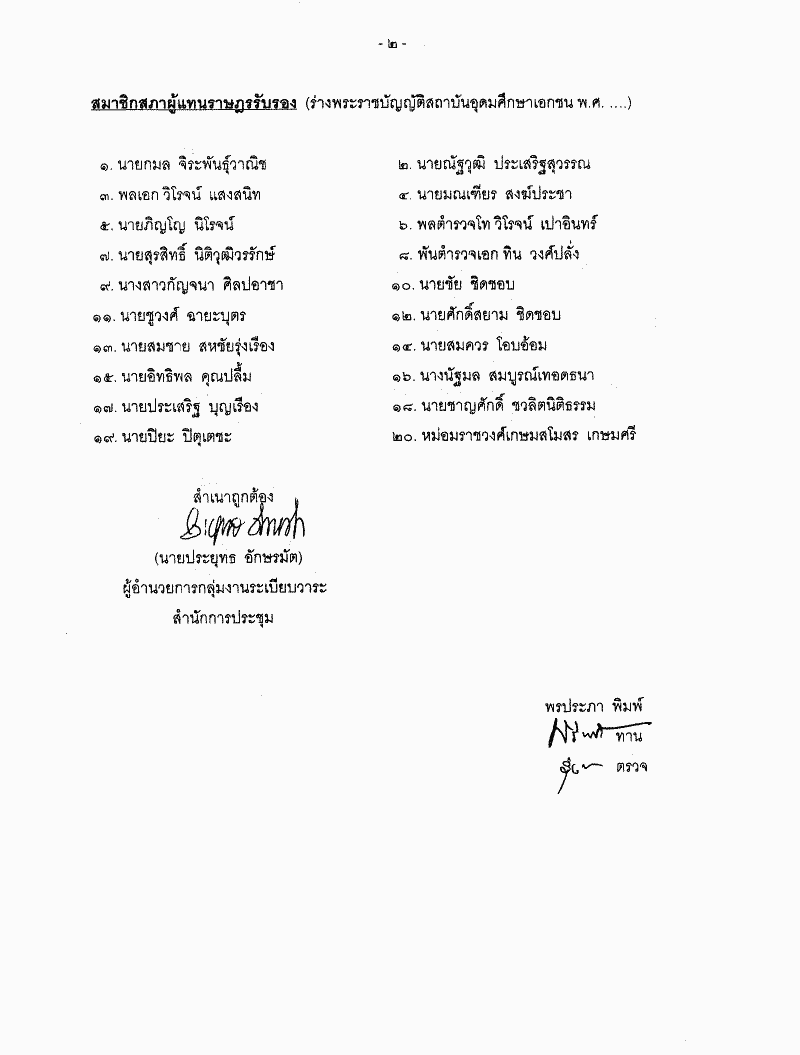 - ๒ -
สมาชิกสภาผู้แทนราษฎรรับรอง (ร่างพระราชบัญญัติสถาบันอุดมศึกษาเอกชน พ.ศ. ....)
๑. นายกมล จิระพันธุ์วาณิช ๒. นายณัฐวุฒิ ประเสริฐสุวรรณ
๓. พลเอก วิโรจน์ แสงสนิท ๔. นายมณเฑียร สงฆ์ประชา
๕. นายภิญโญ นิโรจน์ ๖. พลตำรวจโท วิโรจน์ เปาอินทร์
๗. นายสุรสิทธิ์ นิติวุฒิวรรักษ์ ๘. พันตำรวจเอก ทิน วงศ์ปลั่ง
๙. นางสาวกัญจนา ศิลปอาชา ๑๐. นายชัย ชิดชอบ
๑๑. นายชูวงศ์ ฉายะบุตร ๑๒. นายศักดิ์สยาม ชิดชอบ
๑๓. นายสมชาย สหชัยรุ่งเรือง ๑๔. นายสมควร โอบอ้อม
๑๕. นายอิทธิพล คุณปลื้ม ๑๖. นางนัฐมล สมบูรณ์เทอดธนา
๑๗. นายประเสริฐ บุญเรือง ๑๘. นายชาญศักดิ์ ชวลิตนิติธรรม
๑๙. นายปิยะ ปิตุเตชะ ๒๐. หม่อมราชวงศ์เกษมสโมสร เกษมศรี
สำเนาถูกต้อง
(นายประยุทธ อักษรมัต)
ผู้อำนวยการกลุ่มงานระเบียบวาระ
สำนักการประชุม
พรประภา พิมพ์
ทาน
ตรวจ